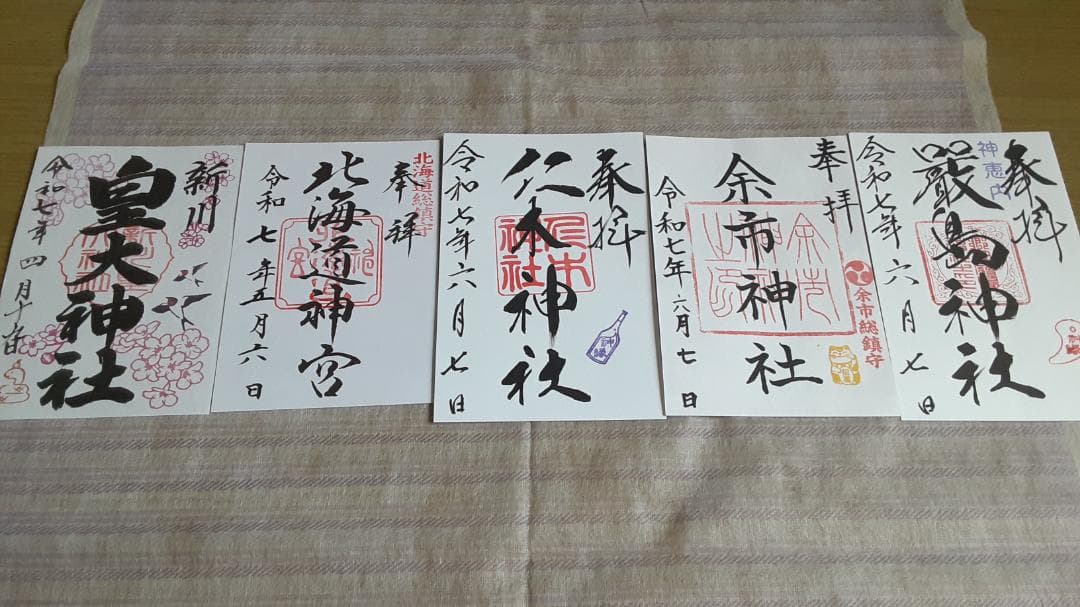 新川
皇大神社
令和七年四月十九日
北海道総鎮守
奉拝
北海道神宮
令和七年五月六日
奉拝
仁木神社
仁木神社
令和七年六月七日
奉拝
余市神社
余市総鎮守
令和七年六月七日
奉拝
神恵内
嚴島神社
令和七年六月七日